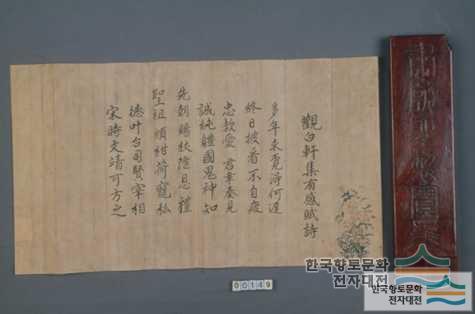 觀白軒集有感賦詩
多年求覓得何遲
終日披看不自疲
忠款愛君章奏見
誠純體國鬼神知
先朝賜杖隆恩禮
聖祖頒柑荷寵私
德叶台司賢宰相
宋時文靖可方之
00149
한국향토문화
전자대전
한국향토문화
전자대전